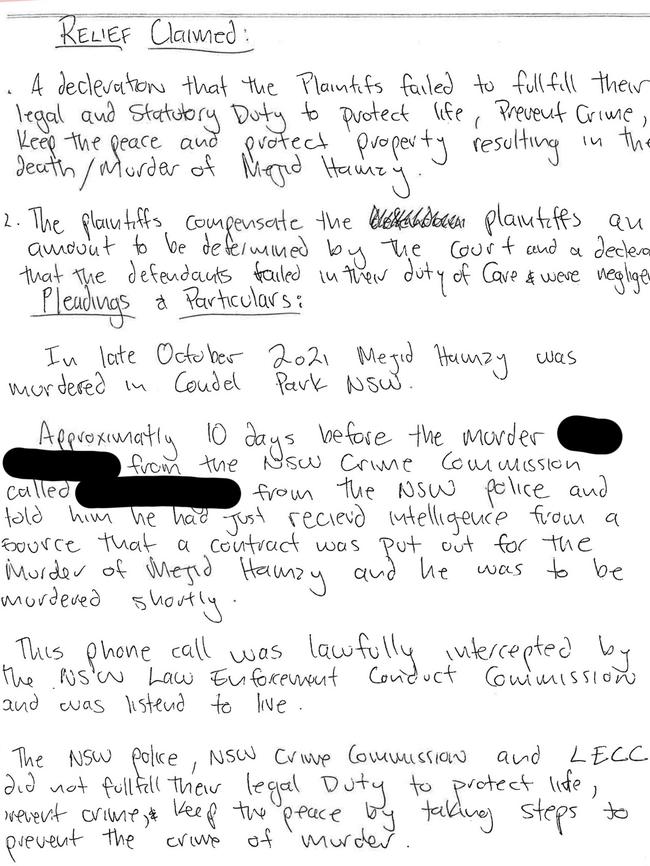 RELIEF Claimed:
. A decleration that the Plaintifs failed to fullfill their
legal and Statutory Duty to protect life, Prevent Crime,
Keep the peace and protect property resulting in the
death/Murder of Mejid Hamzy.
2. The plaintiffs compensate the plaintiffs an
amount to be determined by the Court and a declera
that the defendants failed in their duty of Care & were neglige
Pleadings & Particulars:
In late October 2021 Mejid Hamzy was
murdered in Coudel Park NSW.
Approximatly 10 days before the murder
from the NSW Crime Commission
called from the NSW police and
told him he had just recievd intelligence from a
source that a contract was put out for the
Murder of Mejid Hamzy and he was to be
murdered shortly.
This phone call was lawfully intercepted by
the NSW Law Enforcement Conduct Commission
and was listend to live.
The NSW police, NSW Crime Commission and LECC
did not fullfill their legal Duty to protect life,
prevent crime, & keep the peace by taking steps to
prevent the crime of murder.